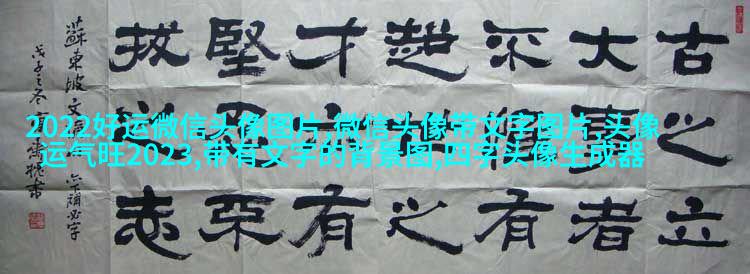 古之立
大事者
不有
超世之
才亦有
堅忍不
拔之志
蘇東坡文
戊子之冬
2022好运微信头像图片,微信头像带文字图片,头像
运气旺2023,带有文字的背景图,四字头像生成器